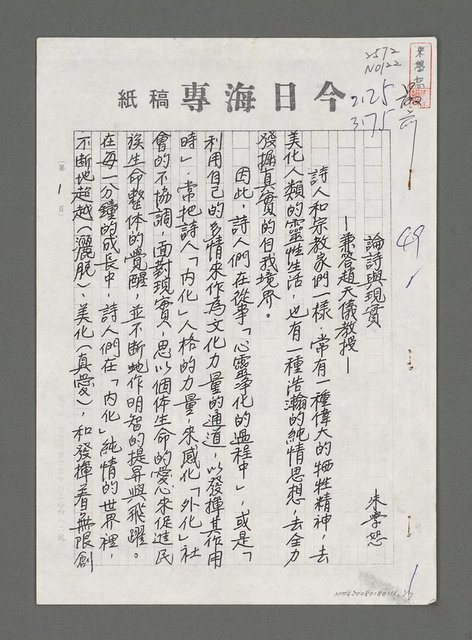 今日海專稿紙
2572
N0122
2125
3175
49
論詩與現實
—兼答趙天儀教授—
朱學恕
詩人和宗教家們一樣，常有一種偉大的犧牲精神，去
美化人類的靈性生活，也有一種浩瀚的純情思想，去全力
發掘真實的自我境界。
因此，詩人們在從事「心靈淨化的過程中」，或是「
利用自己的多情來作為文化力量的通道，以發揮其作用
時」，常把詩人「內化」人格的力量，來感化「外化」社
會的不協調，面對現實，思以個体生命的愛心來促進民
族生命整体的覺醒，並不斷地作明智的提昇與飛躍。
在每一分鐘的成長中，詩人們在「內化」純情的世界裡，
不斷地超越（灑脫）、美化（真愛），和發揮着無限創
（第 1 頁）